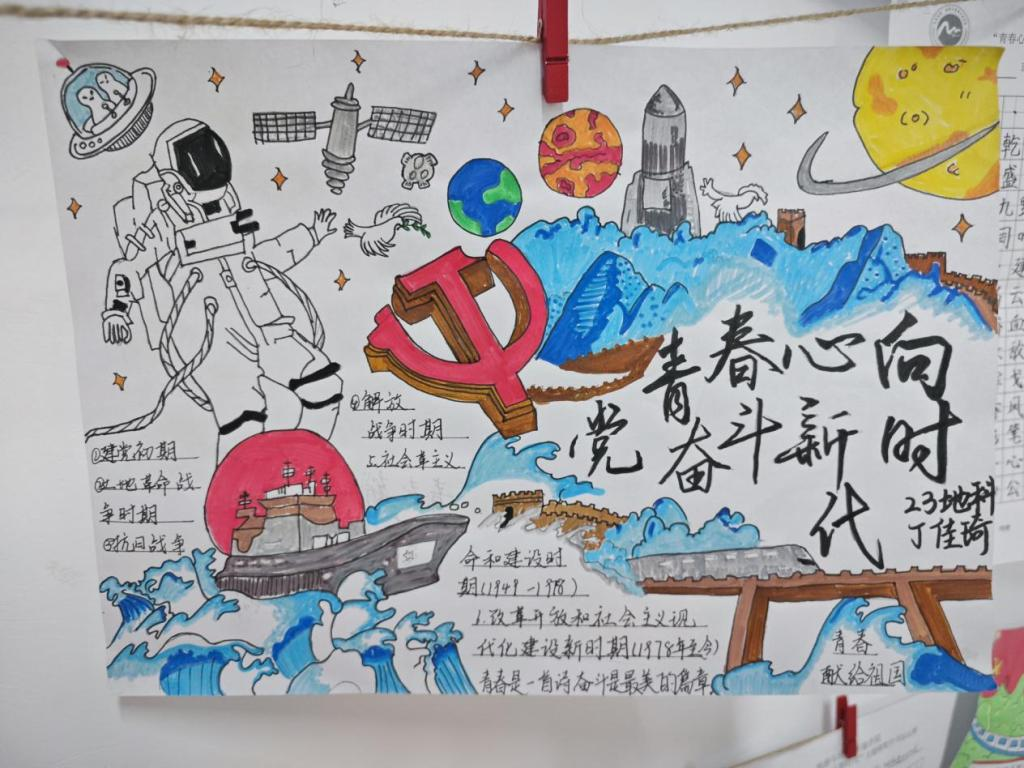 青春心向
党奋斗新时
代
23地科
丁佳琦
①建党初期
②土地革命战
争时期
③抗日战争
④解放
战争时期
上社会革主义
命和建设时
期(1949-1978)
1.改革开放和社会主义现
代化建设新时期(1978年至今)
青春是一首诗奋斗是最美的篇章
青春
献给祖国
"青春心
乾
盛
九
司
云
血
敌
戈
风
笔
心
公